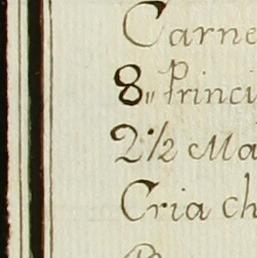 Carne
8,, Princi
2 1/2 Ma
Cria ch